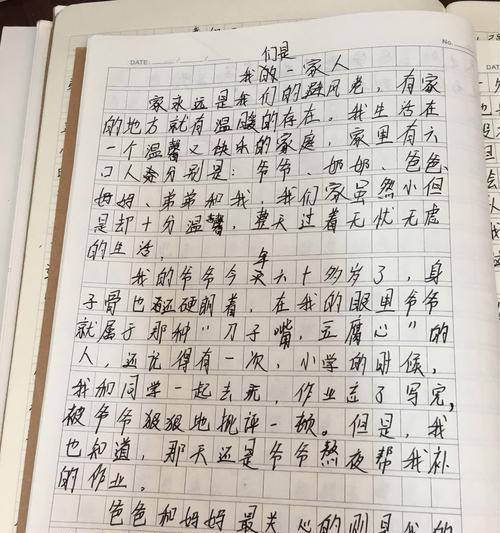 DATE
们是
我的一家人
家永远是我们的避风港，有家
的地方就有温暖的存在。我生活在
一个温馨又快乐的家庭，家里有六
口人分别是：爷爷、奶奶、爸爸、
妈妈、弟弟和我，我们家虽然小但
是却十分温馨，整天过着无忧无虑
的生活，
年
我的爷爷今六十多岁了，身
子骨也还硬朗着，在我的眼里爷爷
就属于那种“刀子嘴，豆腐心”的
人，还记得有一次，小学的时候，
我和同学一起去玩，作业忘了写完，
被爷爷狠狠地批评一顿。但是，我
也知道，那天还是爷爷熬夜帮我补
的作业。
爸爸和妈妈最关心的则是我的